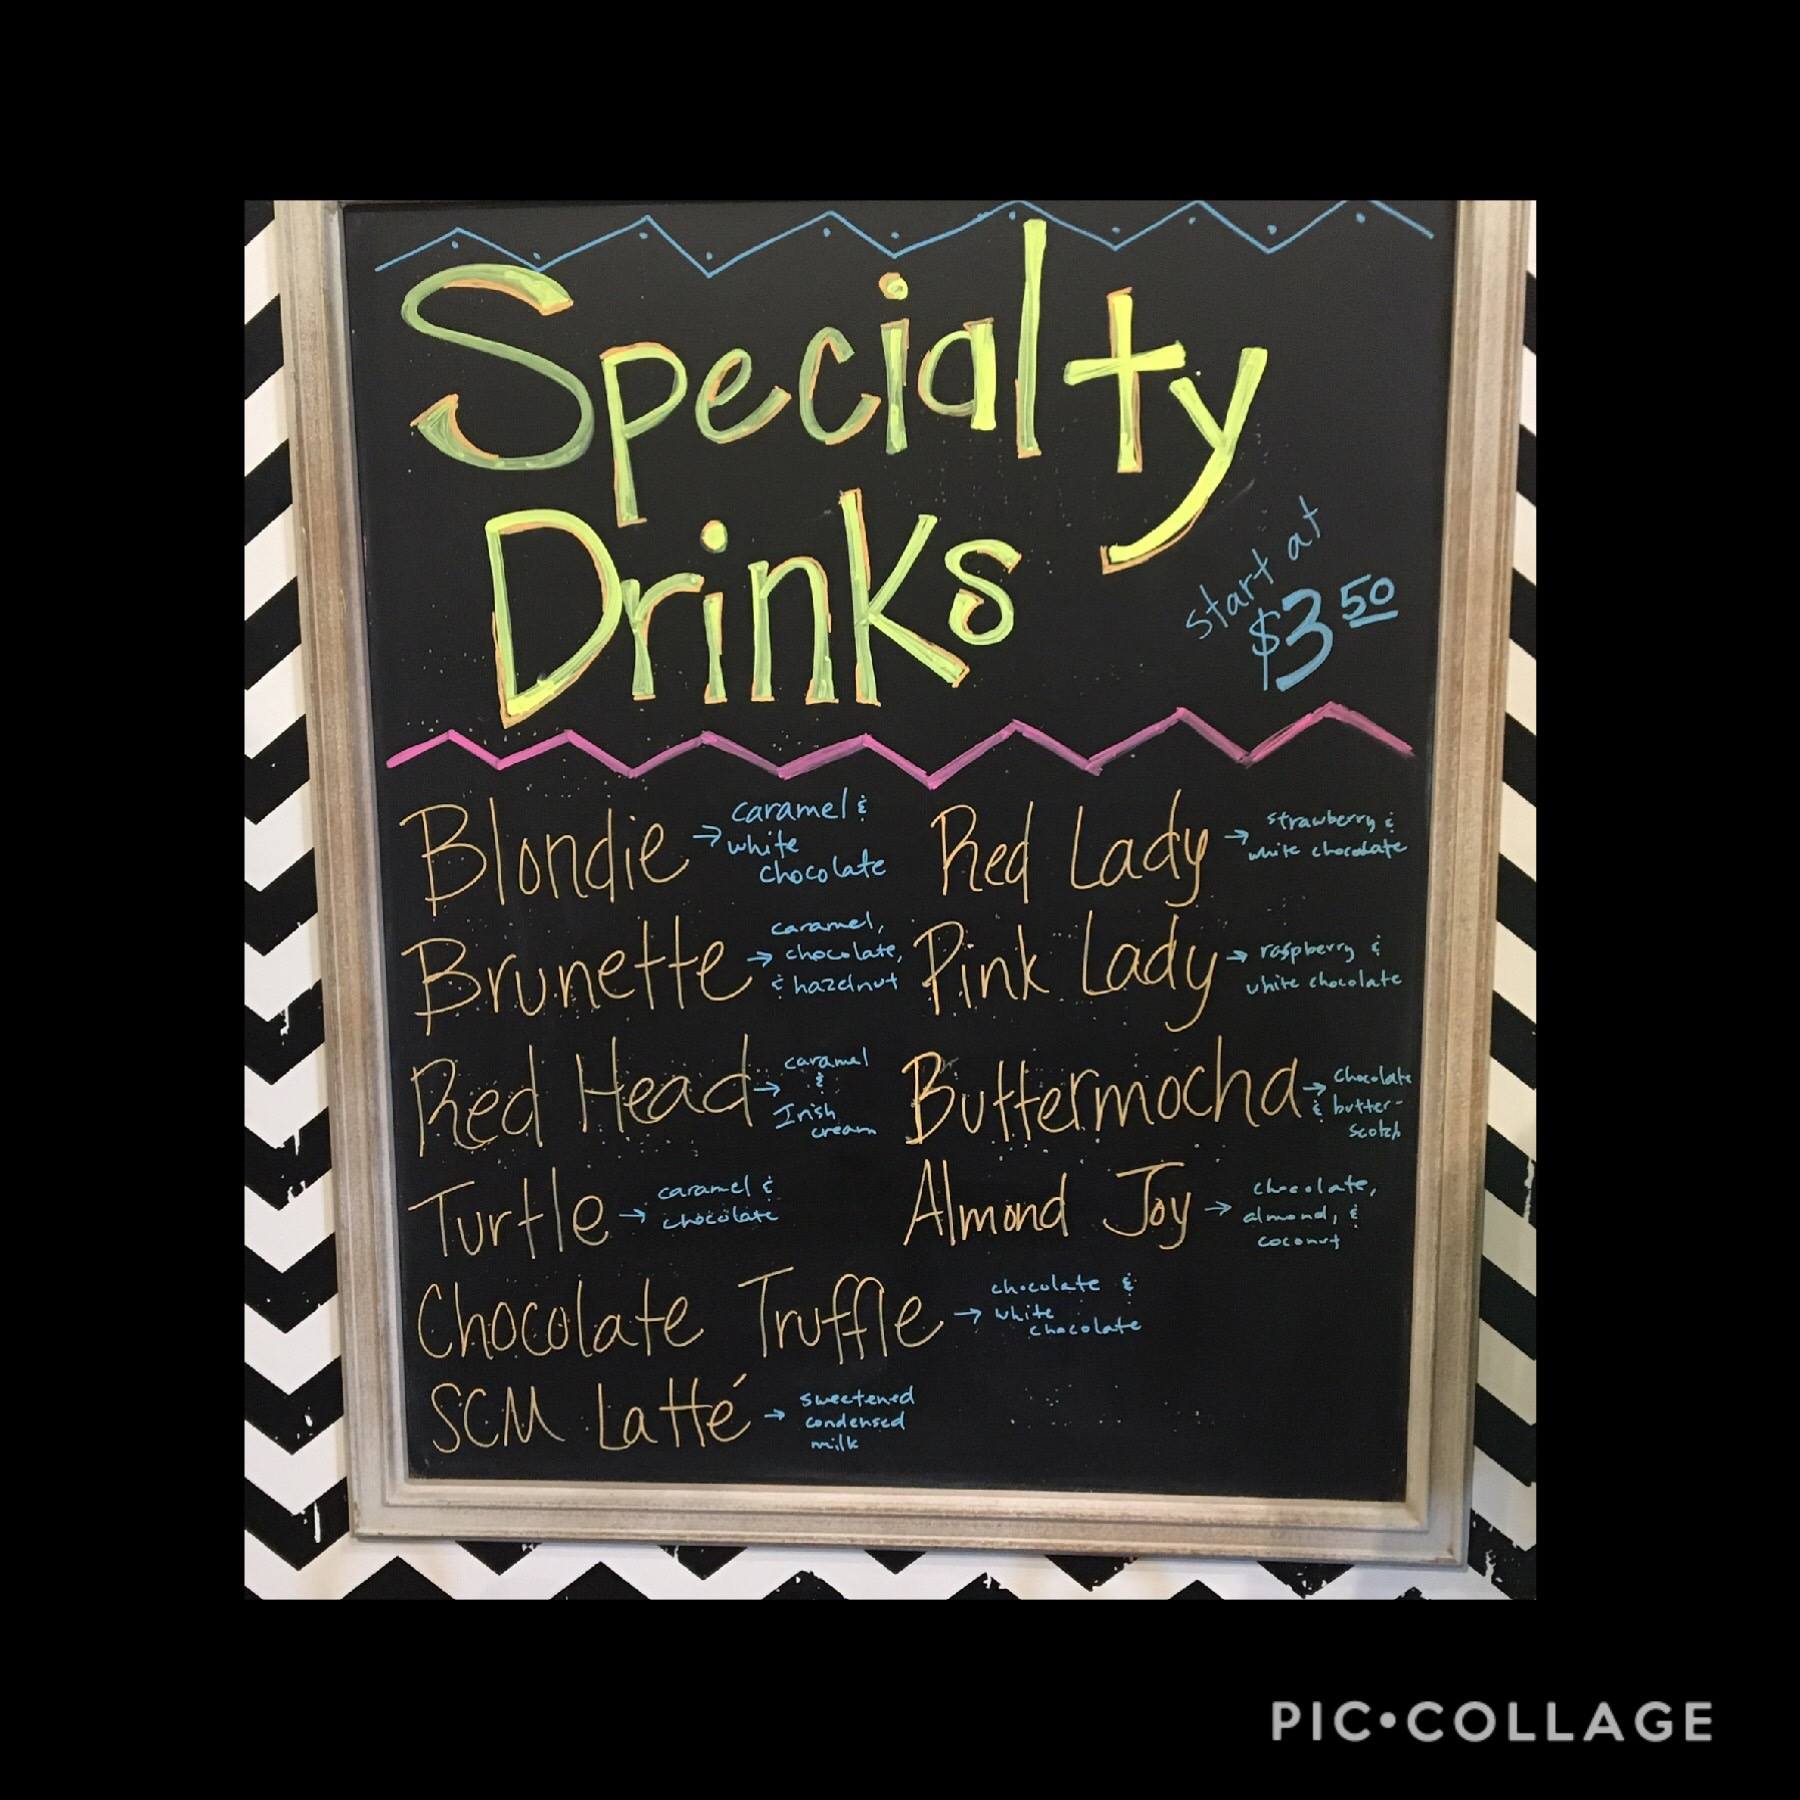 Specialty
Drinks
start at
$3.50
Blondie → caramel &
white
chocolate
Red Lady → strawberry &
white chocolate
Brunette → caramel,
chocolate,
& hazelnut
Pink Lady → raspberry &
white chocolate
Red Head → caramel
&
Irish
cream
Buttermocha → chocolate
& butter-
scotch
Turtle → caramel &
chocolate
Almond Joy → chocolate,
almond, &
coconut
Chocolate Truffle → chocolate &
white
chocolate
SCM Latté → sweetened
condensed
milk
PIC•COLLAGE